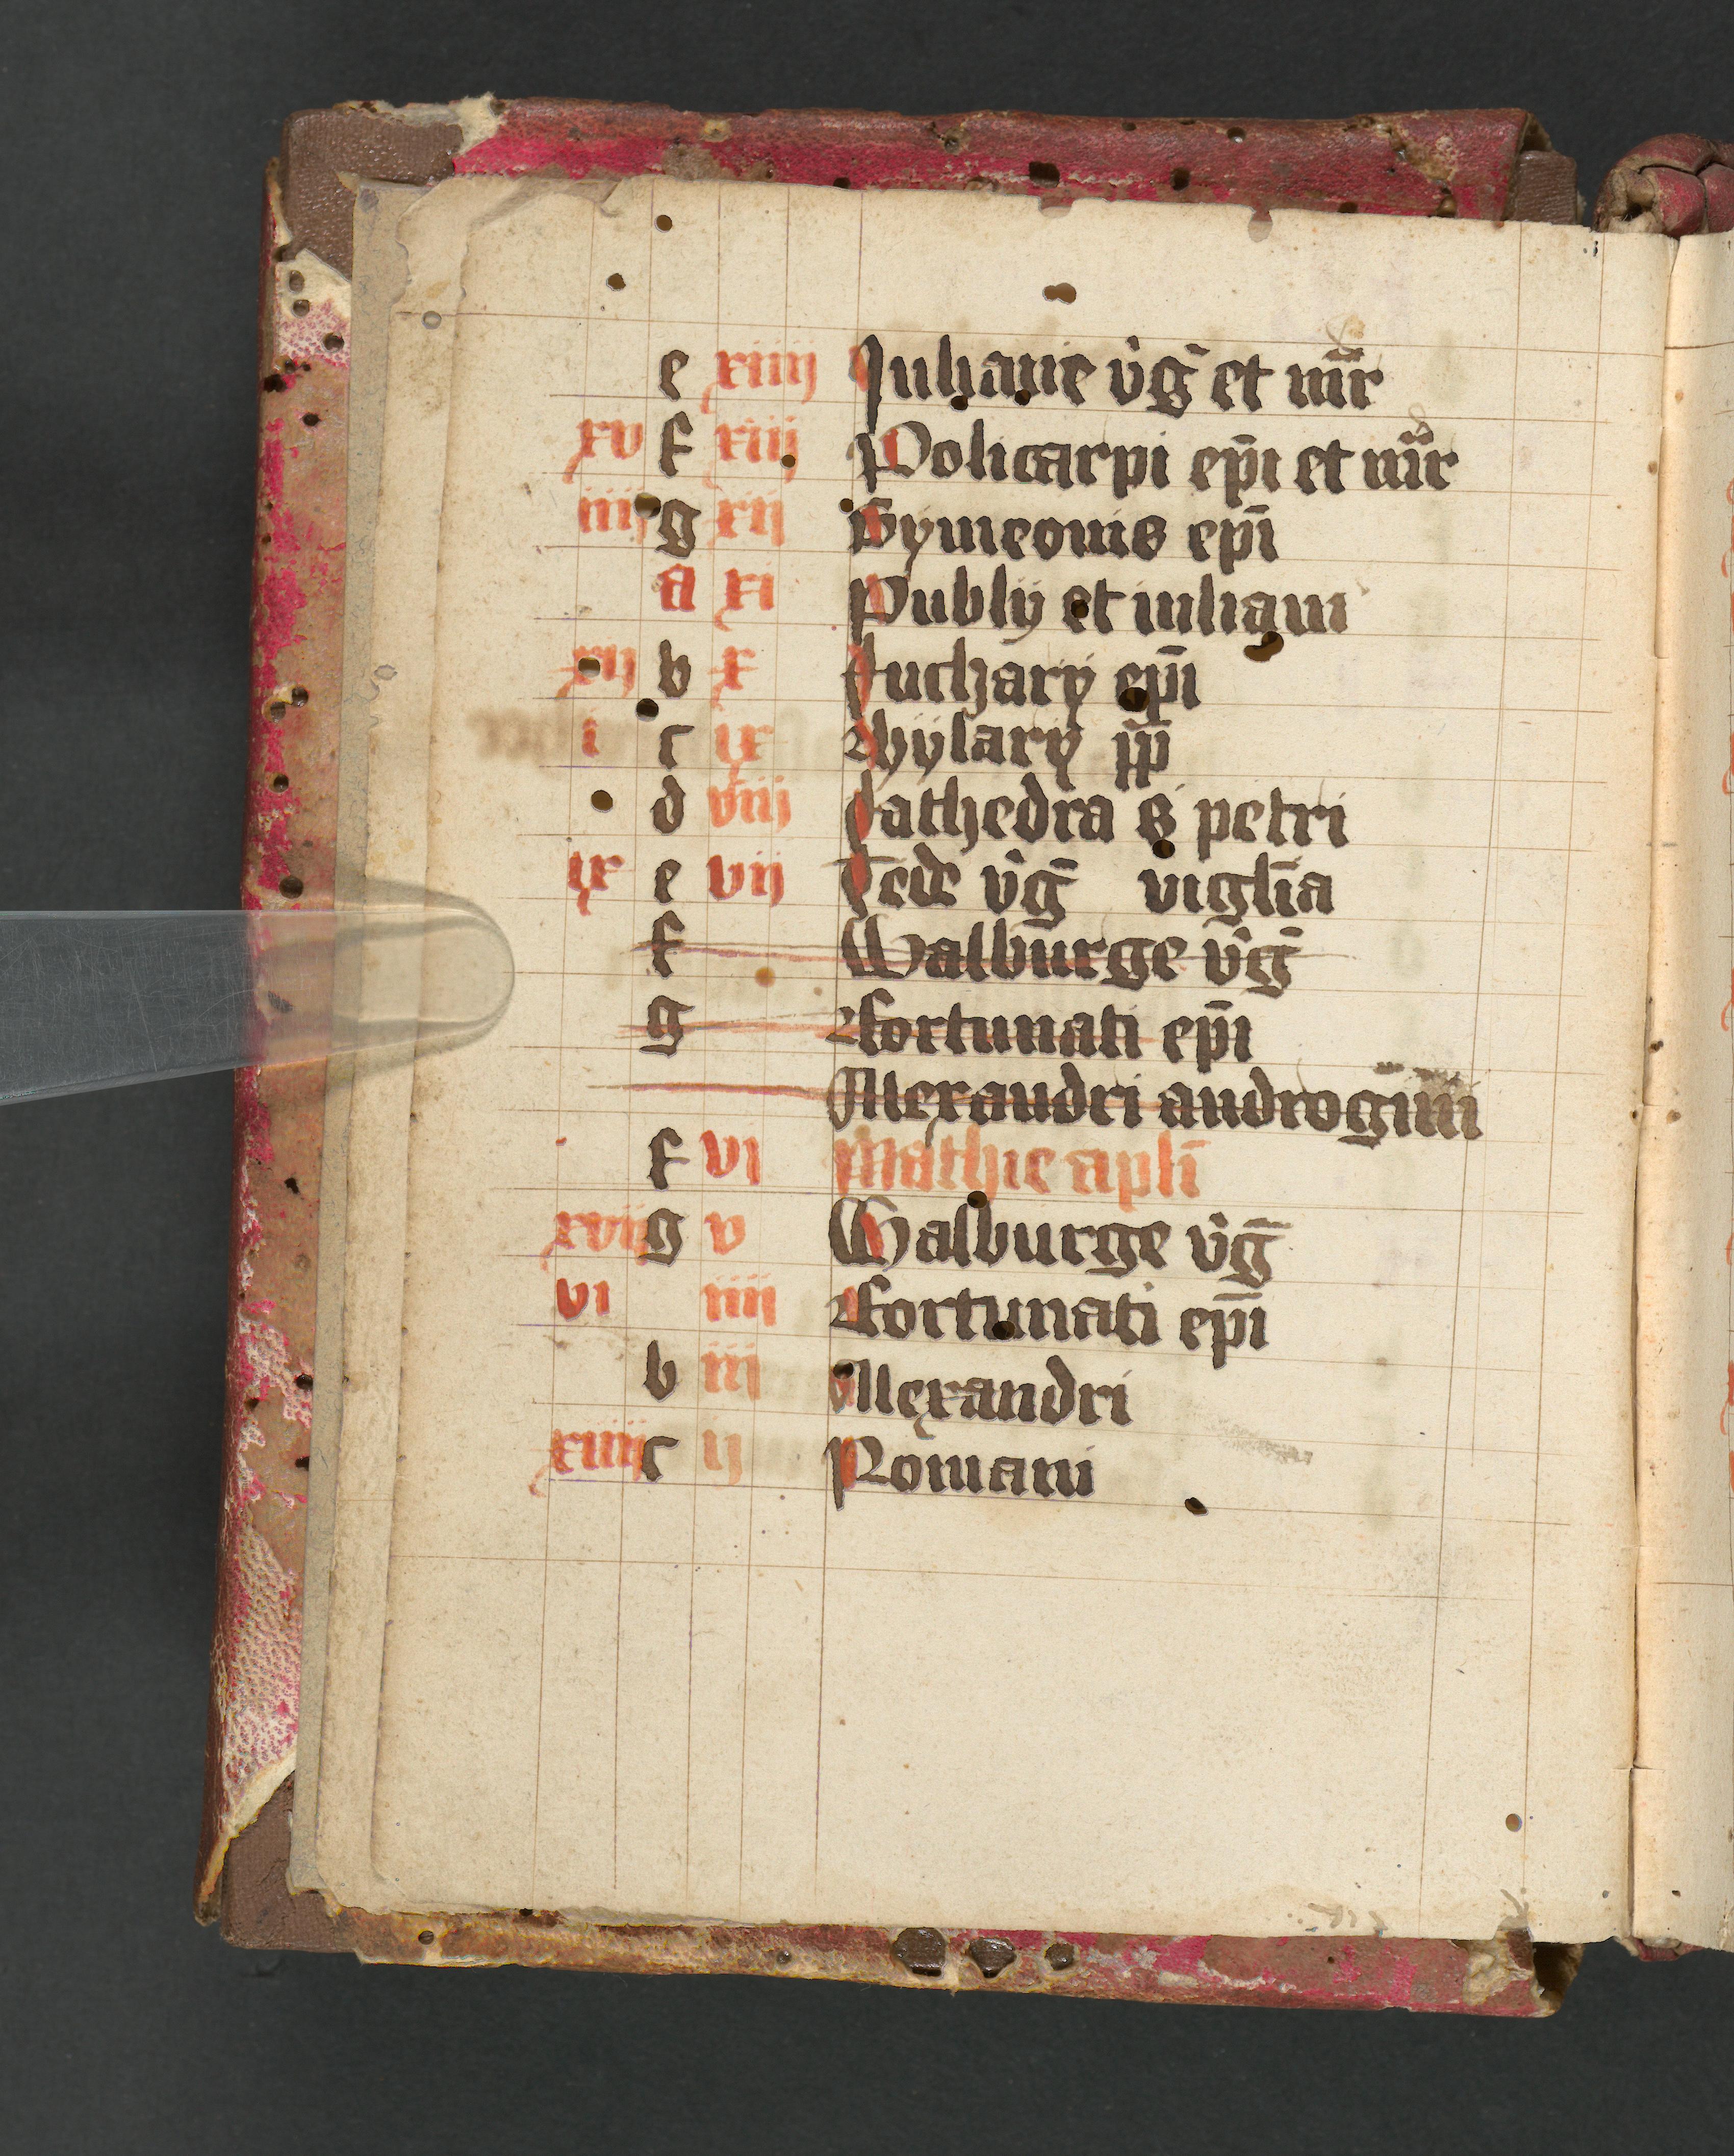 e xiiij Juliane v̂g̅ et m̅r
xv f xiij Policarpi ep̅i et m̅r
iiij g xij Symeonis ep̅i
A xi Publij et iuliani
xij b x Eucharij ep̅i
i c ix Hylarij pp̅
d viij Cathedra s petri
ix e vij Tecle v̂g̅ vigl̅ia
f Walburge v̂g̅
g Fortunati ep̅i
Allexandri androgini
f vi Mathie apl̅i
xvij g v Walburge v̂g̅
vi iiij Fortunati ep̅i
b iij Allexandri
xiiij c ij Romani